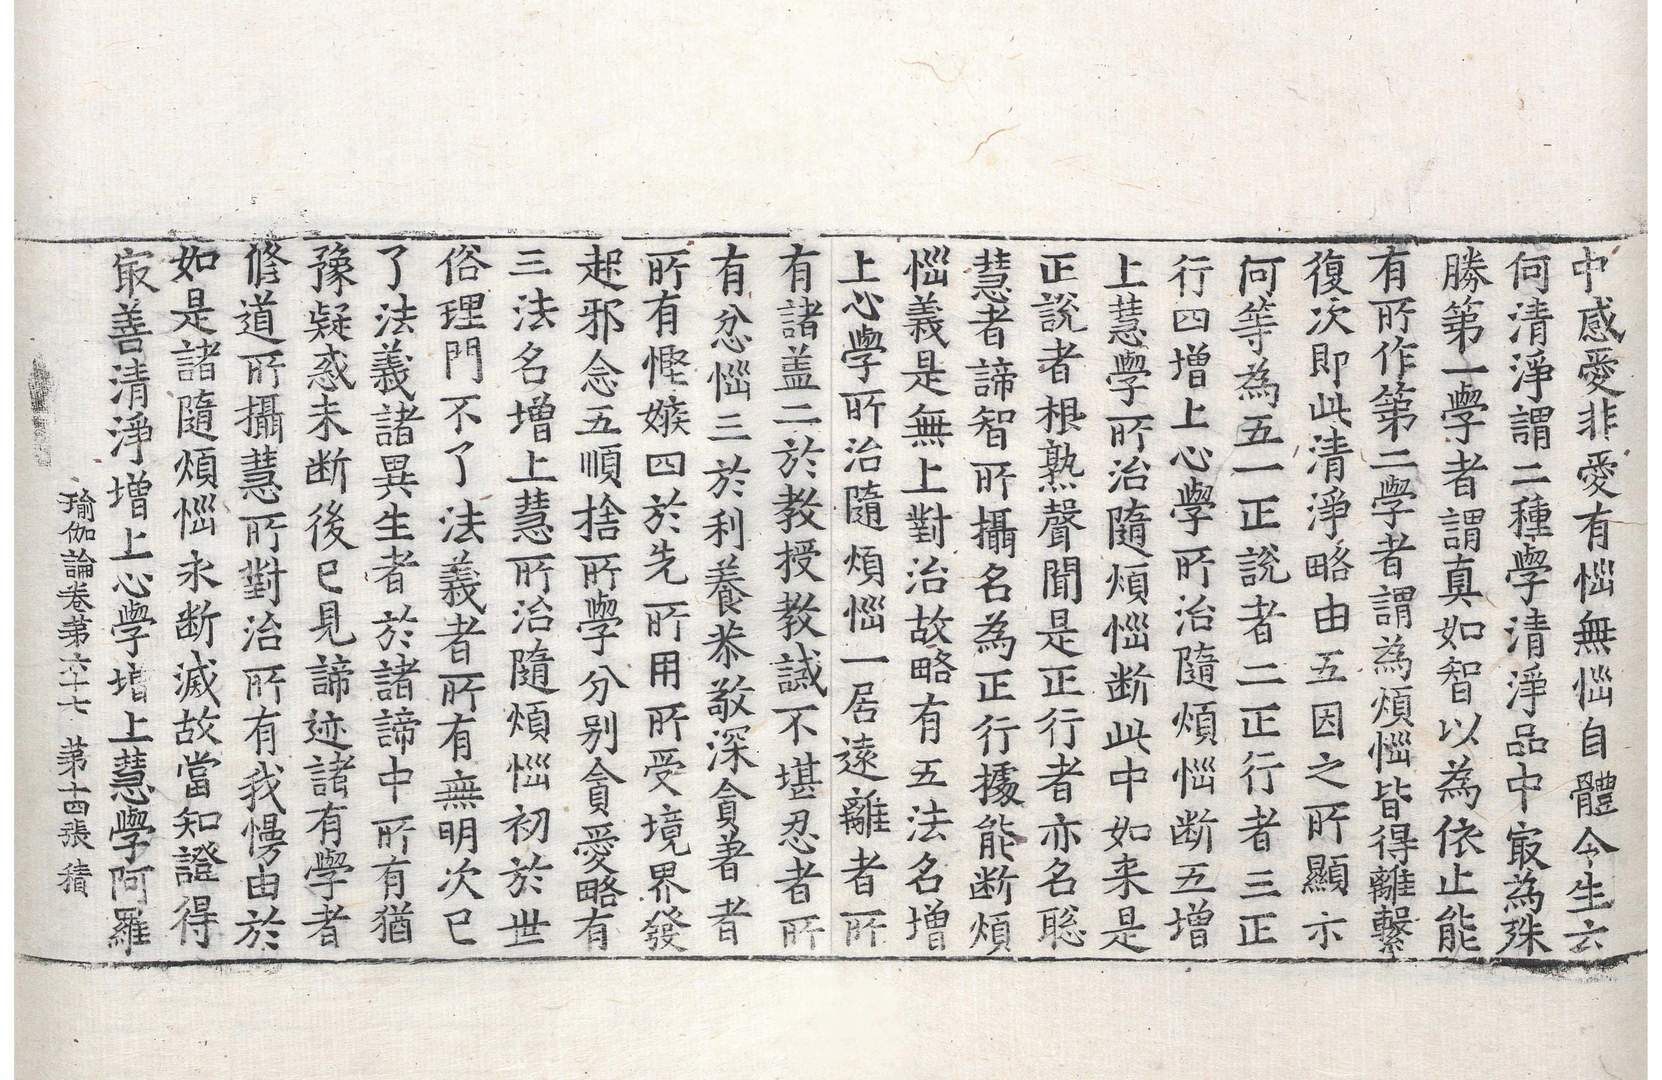 中感愛非愛有惱無惱自體今生云
何清淨謂二種學清淨品中㝡為殊
勝第一學者謂真如智以為依止能
有所作第二學者謂為煩惱皆得離繫
復次即此清淨略由五因之所顯示
何等為五一正說者二正行者三正
行四增上心學所治隨煩惱断五增
上慧學所治隨煩惱断此中如来是
正說者根熟聲聞是正行者亦名聡
慧者諦智所攝名為正行據能断煩
惱義是無上對治故略有五法名增
上心學所治隨煩惱一居遠離者所
有諸盖二於教授教誡不堪忍者所
有忿惱三於利養恭敬深貪著者
所有慳嫉四於先所用所受境界發
起邪念五順捨所學分别貪愛略有
三法名增上慧所治隨煩惱初於世
俗理門不了法義者所有無明次已
了法義諸異生者於諸諦中所有猶
豫疑惑未断後已見諦迹諸有學者
修道所攝慧所對治所有我慢由於
如是諸隨煩惱永断滅故當知證得
㝡善清淨增上心學增上慧學阿羅
瑜伽論卷第六十七 第十四張 積